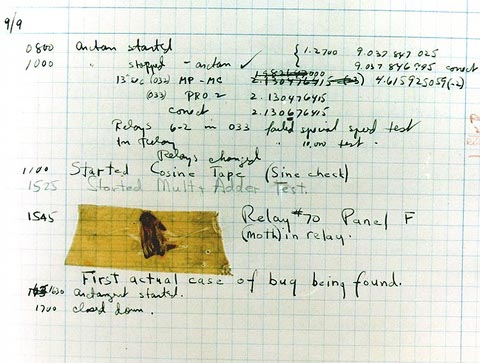 9/9
0800 arctan started { 1.2700 9.037 847 025
1000 " stopped - arctan ✓ 9.037 846 995 correct
13"uc (032) MP - MC 2.130476415 (-3) 4.615925059(-2)
(033) PRO 2 2.130476415
correct 2.130676415
Relays 6-2 in 033 failed special speed test
in Relay " 10,000 test.
Relays changed
1100 Started Cosine Tape (Sine check)
1525 Started Mult+ Adder Test.
1545 Relay #70 Panel F
(moth) in relay.
First actual case of bug being found.
1630 arctangent started.
1700 closed down.